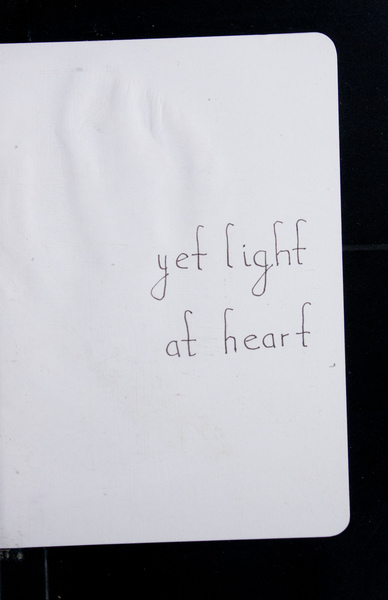 yet light
at heart